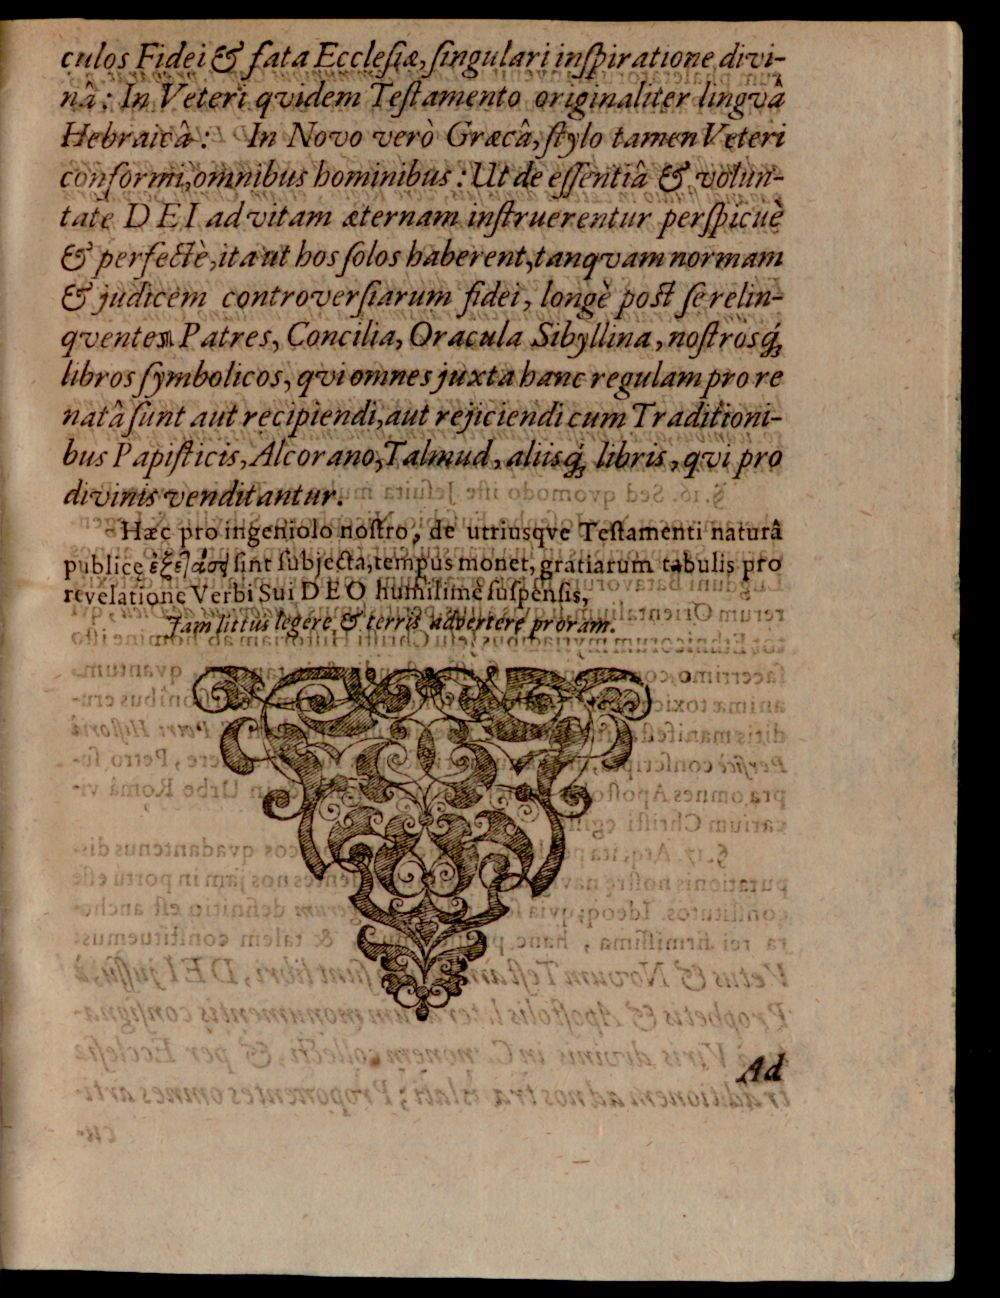 culos Fidei & fata Ecclesiæ, singulari inspiratione divi-
nâ: In Veteri qvidem Testamento originaliter lingvâ
Hebraicâ: In Novo verò Græcâ, stylo tamen Veteri
conformi, omnibus hominibus: Ut de essentiâ & volun-
tate DEI ad vitam æternam instruerentur perspicuè
& perfectè, ita ut hos solos haberent, tanqvam normam
& judicem controversiarum fidei, longè post se relin-
qventes Patres, Concilia, Oracula Sibyllina, nostrosq́;
libros symbolicos, qvi omnes juxta hanc regulam pro re
natâ sunt aut recipiendi, aut rejiciendi cum Traditioni-
bus Papisticis, Alcorano, Talmud, aliisq́; libris, qvi pro
divinis venditantur.
Hæc pro ingeniolo nostro, de utriusqve Testamenti naturâ
publicę sint subjecta, tempus monet, gratiarum tabulis pro
revelatione Verbi Sui DEO humilimè suspensis,
Jam littus legere & terris advertere proram.
Ad